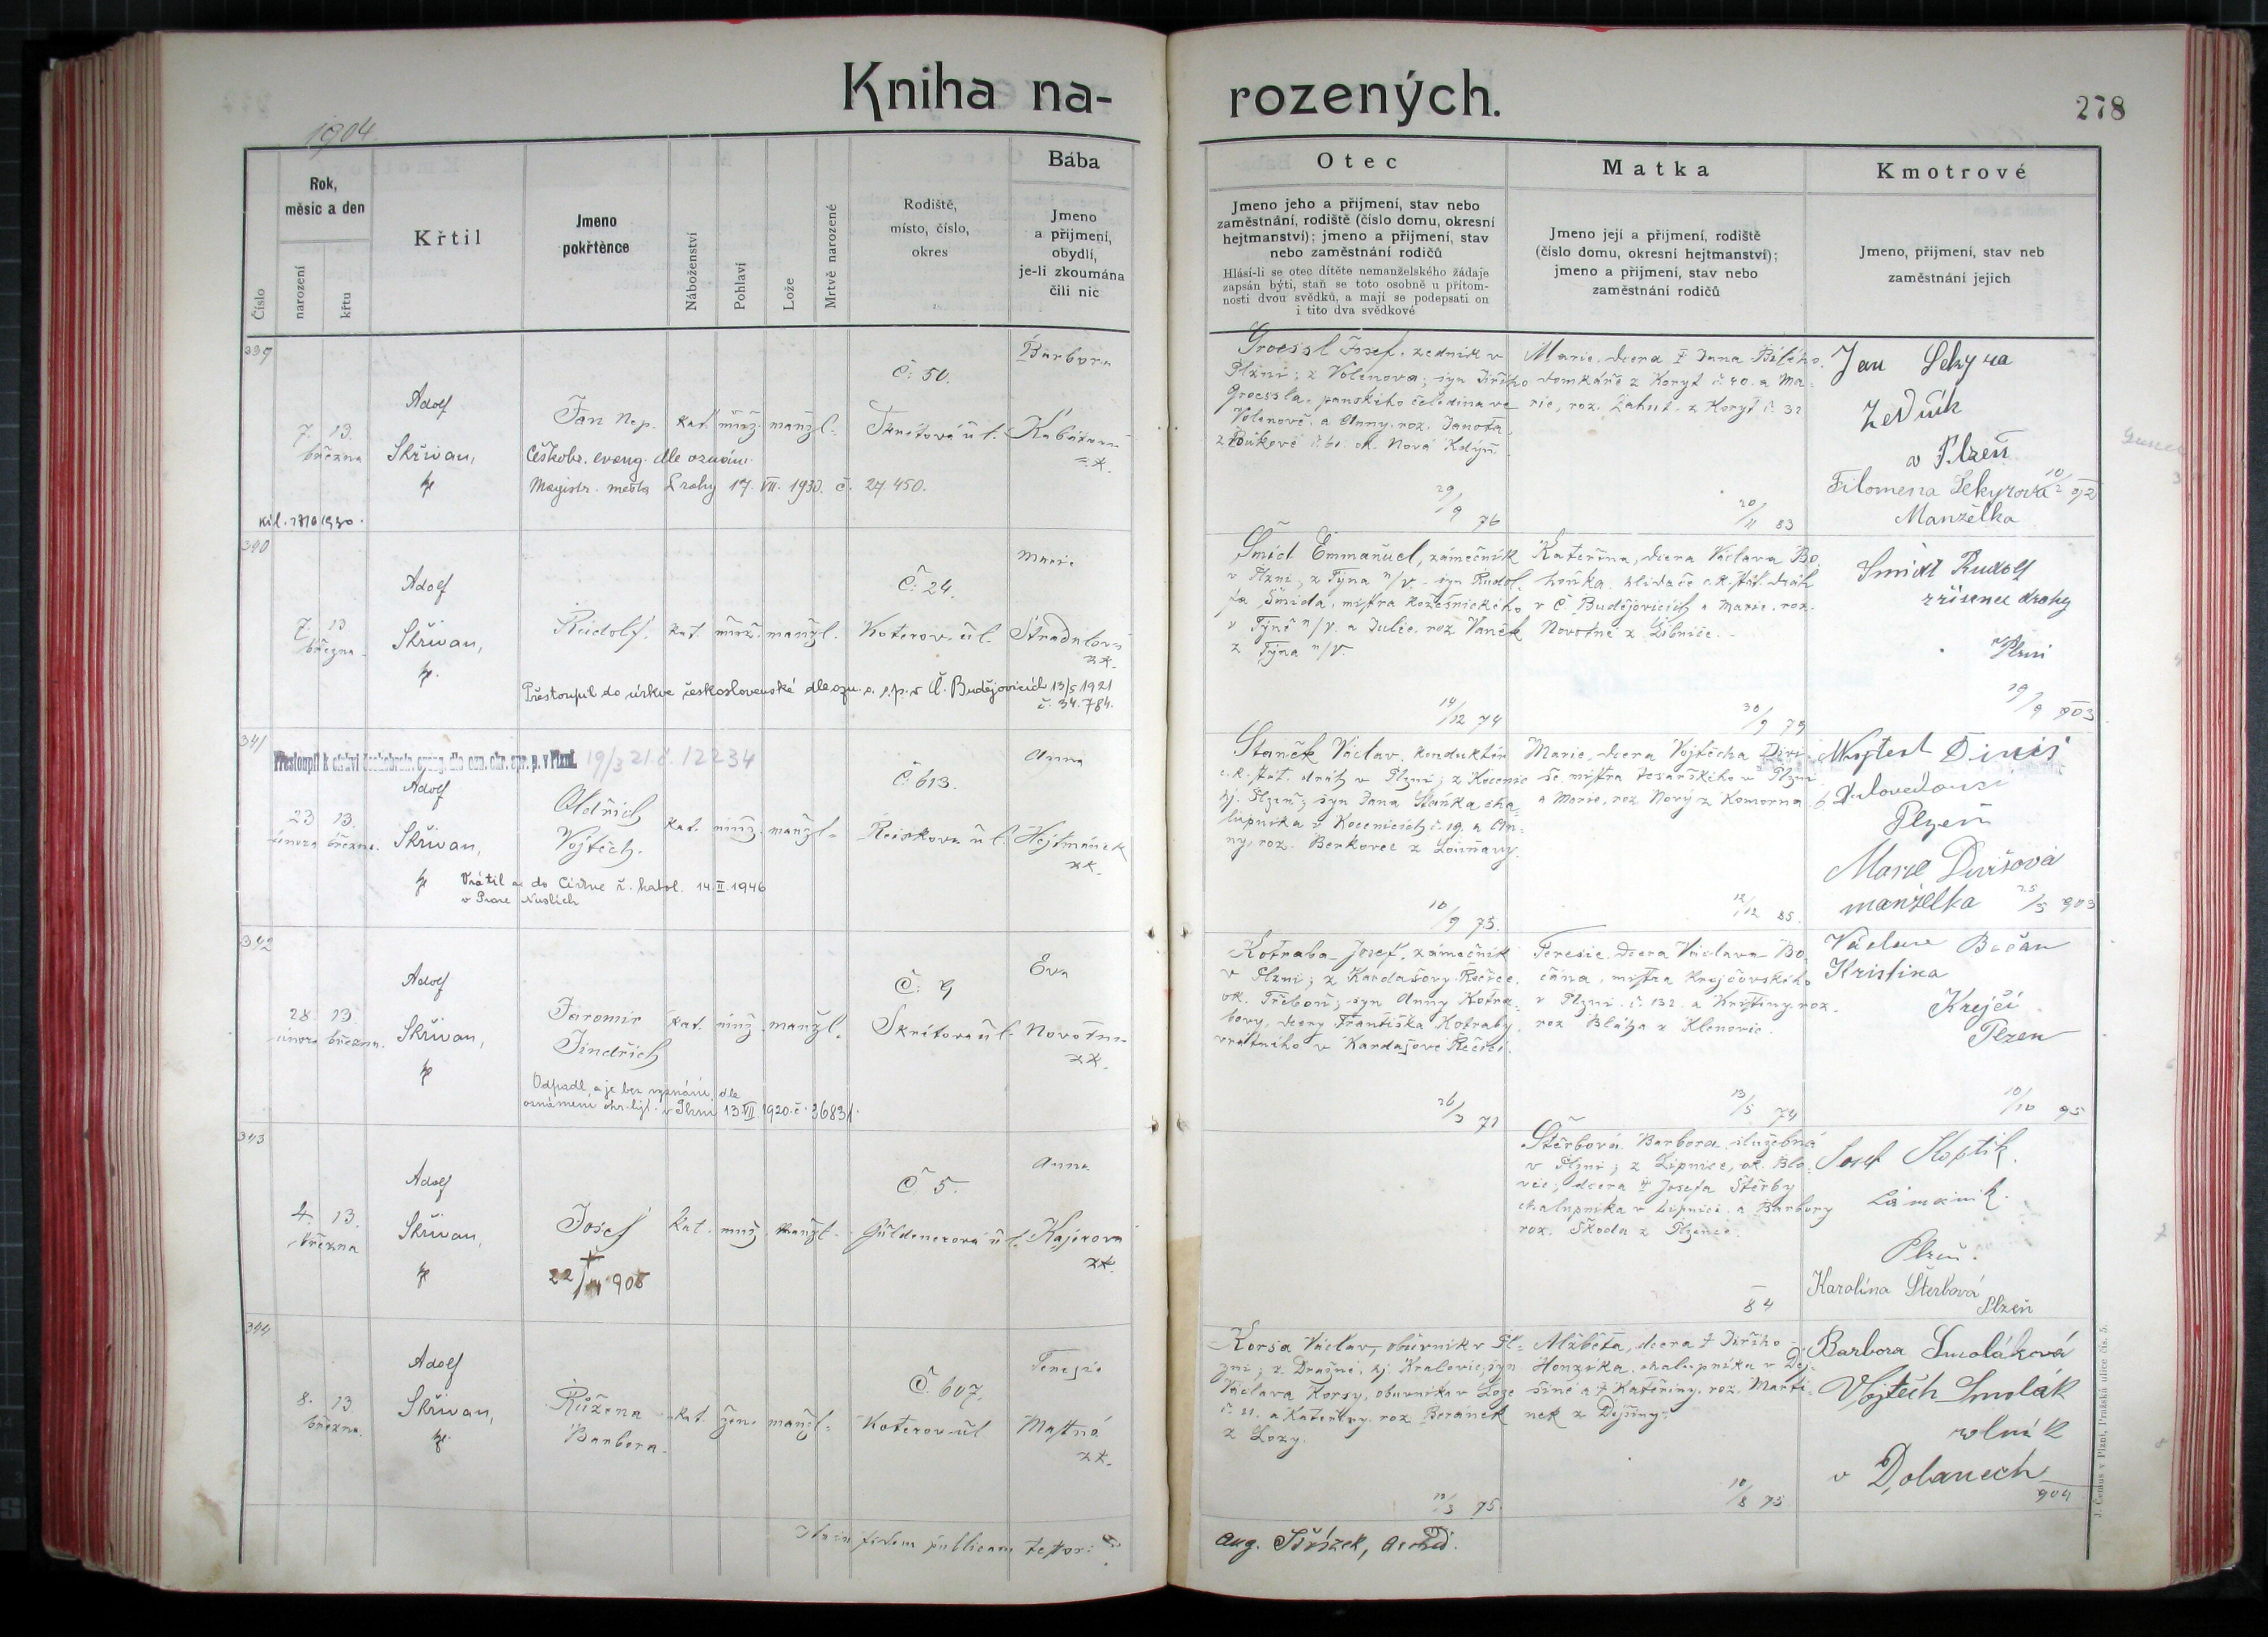 Kniha na-
rozených.
278
1904
Rok,
měsíc a den
Číslo
narození
křtu
Křtil
Jmeno
pokřtěnce
Náboženství
Pohlaví
Lože
Mrtvě narozené
Rodiště,
místo, číslo,
okres
Bába
Jmeno
a příjmení,
obydlí,
je-li zkoumána
čili nic
Otec
Jmeno jeho a příjmení, stav nebo
zaměstnání, rodiště (číslo domu, okresní
hejtmanství); jmeno a příjmení, stav
nebo zaměstnání rodičů
Hlásí-li se otec dítěte nemanželského žádaje
zapsán býti, staň se toto osobně u přítom-
nosti dvou svědků, a mají se podepsati on
i tito dva svědkové
Matka
Jmeno její a příjmení, rodiště
(číslo domu, okresní hejtmanství);
jmeno a příjmení, stav nebo
zaměstnání rodičů
Kmotrové
Jmeno, příjmení, stav neb
zaměstnání jejich
339
7. 13.
března
Adolf
Skřivan,
Jan Nep.
kat. muž. manžl.
Č. 50.
Škrétova ul.
Barbora
Českobr. evang. dle oznám.
Magistr. města Prahy 17. VII. 1930. č. 27 450.
Groessl Josef, zedník v
Plzni; z Volenova; syn Jiřího
Groessla, panského čeledína ve
Volenově, a Anny, roz. Janota
29/9 76
Marie, dcera † Jana Bílého,
domkáře z Koryt č. 40. a Ma-
rie, roz. z Koryt č. 32
20/11 83
Jan Sekyra
Zedník
v Plzeň
Filomena Sekyrová
Manželka
340
7. 13
března
Adolf
Skřivan,
Rudolf.
kat. muž. manžl.
Č. 24.
Koterov. ul.
Marie
Stradalová
zk.
Přestoupil do církve československé dle ozn. o. s. p. v Č. Budějovicích 13/5 1921
č. 34.784.
Šmíd Emmanuel, zámečník
v Plzni, z Týna n/V. syn Rudol-
fa Šmída, mistra řezbnického
v Týně n/V. a Julie, roz. Vaněk
z Týna n/V.
14/12 74
Kateřina, dcera Václava Bo-
houška, hlídače c. k. stát. drah
v Č. Budějovicích a Marie, roz.
Novotné z Libníče.
30/9 79
Smidt Rudolf
zřízenec drahy
v Plzni
19/9 903
341
Přestoupil k církvi českobratr. evang. dle ozn. okr. spr. p. v Plzni. 19/3 21 č. 12234
23 13.
února března.
Adolf
Skřivan,
Oldřich
Vojtěch.
kat. muž. manžl.
Č. 613.
Reiskova ul.
Anna
Hejtmánek
zk.
Vrátil se do Církve ř. katol. 14.II.1946
v Praze Nuslích
Staněk Václav, konduktér
c. k. stát. drah v Plzni; z Kocenic
hj. Plzeň; syn Jana Staňka cha-
lupníka v Kocenicích č. 19. a An-
ny, roz. Berkovec z Louňavy.
10/9 75.
Marie, dcera Vojtěcha Divi-
še mistra tesařského v Plzni
a Marie, roz. Nový z Komorna
12/12 85.
Plzeň
Marie Divišová
manželka 25/5 903
342
28 13
února března.
Adolf
Skřivan,
Jaromír
Jindřich
kat. muž. manžl.
Č. 9
Škrétova ul.
Eva
Novotná
zk.
Odpadl a je bez vyznání dle
oznámení okr. hejt. v Plzni 13.VII 1920. č. 36831.
Kotraba Josef, zámečník
v Plzni; z Kardašovy Řečice,
ok. Třeboň; syn Anny Kotra-
bovy, dcery Františka Kotraby,
vrátného v Kardašově Řečici.
26/3 71
Teresie, dcera Václava Bo-
čána, mistra krejčovského
v Plzni č. 132. a Kristiny roz.
roz Bláha z Klenovic.
13/5 74
Václav Bočan
Kristina
Krejčí
Plzen
10/10 95
343
4. 13.
března
Adolf
Skřivan,
Josef
kat. muž. manžl.
Č 5.
Güldenerová ul.
Anna
Kajerova
zk.
Štěrbová Barbora služebná
v Plzni; z Lipnice, ok. Blo-
vic; dcera † Josefa Štěrby
chalupníka v Lipnici a Barbory
roz. Škoda z Plzence.
84
Josef
Plzeň.
Karolína Šterbová
Plzeň
344
8. 13
března.
Adolf
Skřivan,
Růžena
Barbora.
kat. žen. manžl.
Č. 607.
Koterov. ul
Teresie
Mastná
zk.
Korsa Václav, obuvník v Pl-
zni; z Dražně, hj. Kralovic, syn
Václava Korsy, obuvníka v Loze
č. 21. a Kateřiny, roz Beránek
z Lozy.
12/3 75.
Alžběta, dcera † Jiřího
Honzíka, chalupníka v Dej-
šině a † Kateřiny, roz. Marti-
nek z Dejšiny.
10/8 75
Barbora Smolákové
Vojtěch Smolák
rolník
v Dolanech
904
Ita in fidem publicam testor:
Aug. Stř
J. Čemus v Plzni, Pražská ulice čís. 5.